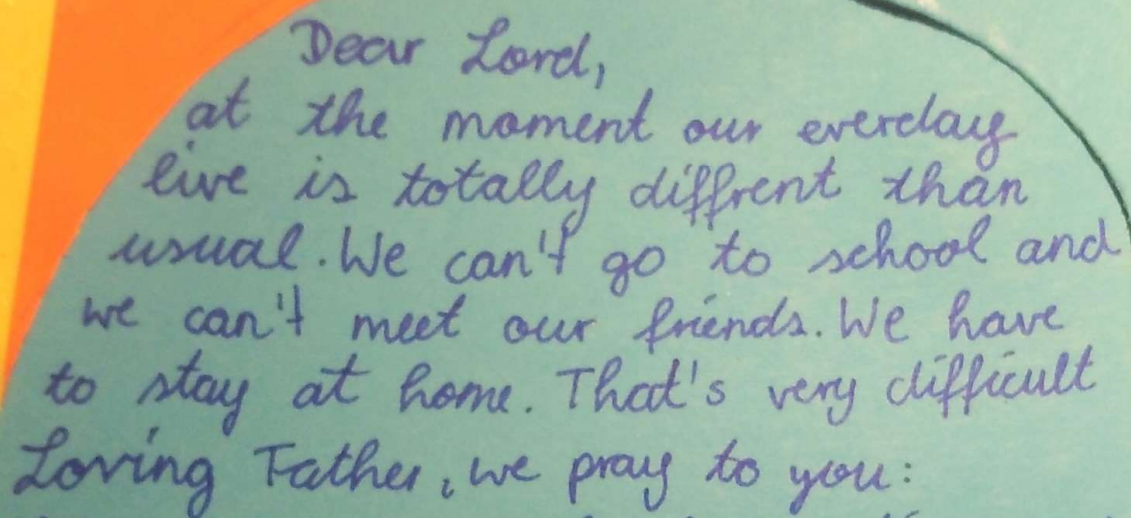 Dear Lord,
at the moment our everday
live is totally diffrent than
usual. We can't go to school and
we can't meet our friends. We have
to stay at home. That's very difficult
Loving Father, we pray to you: